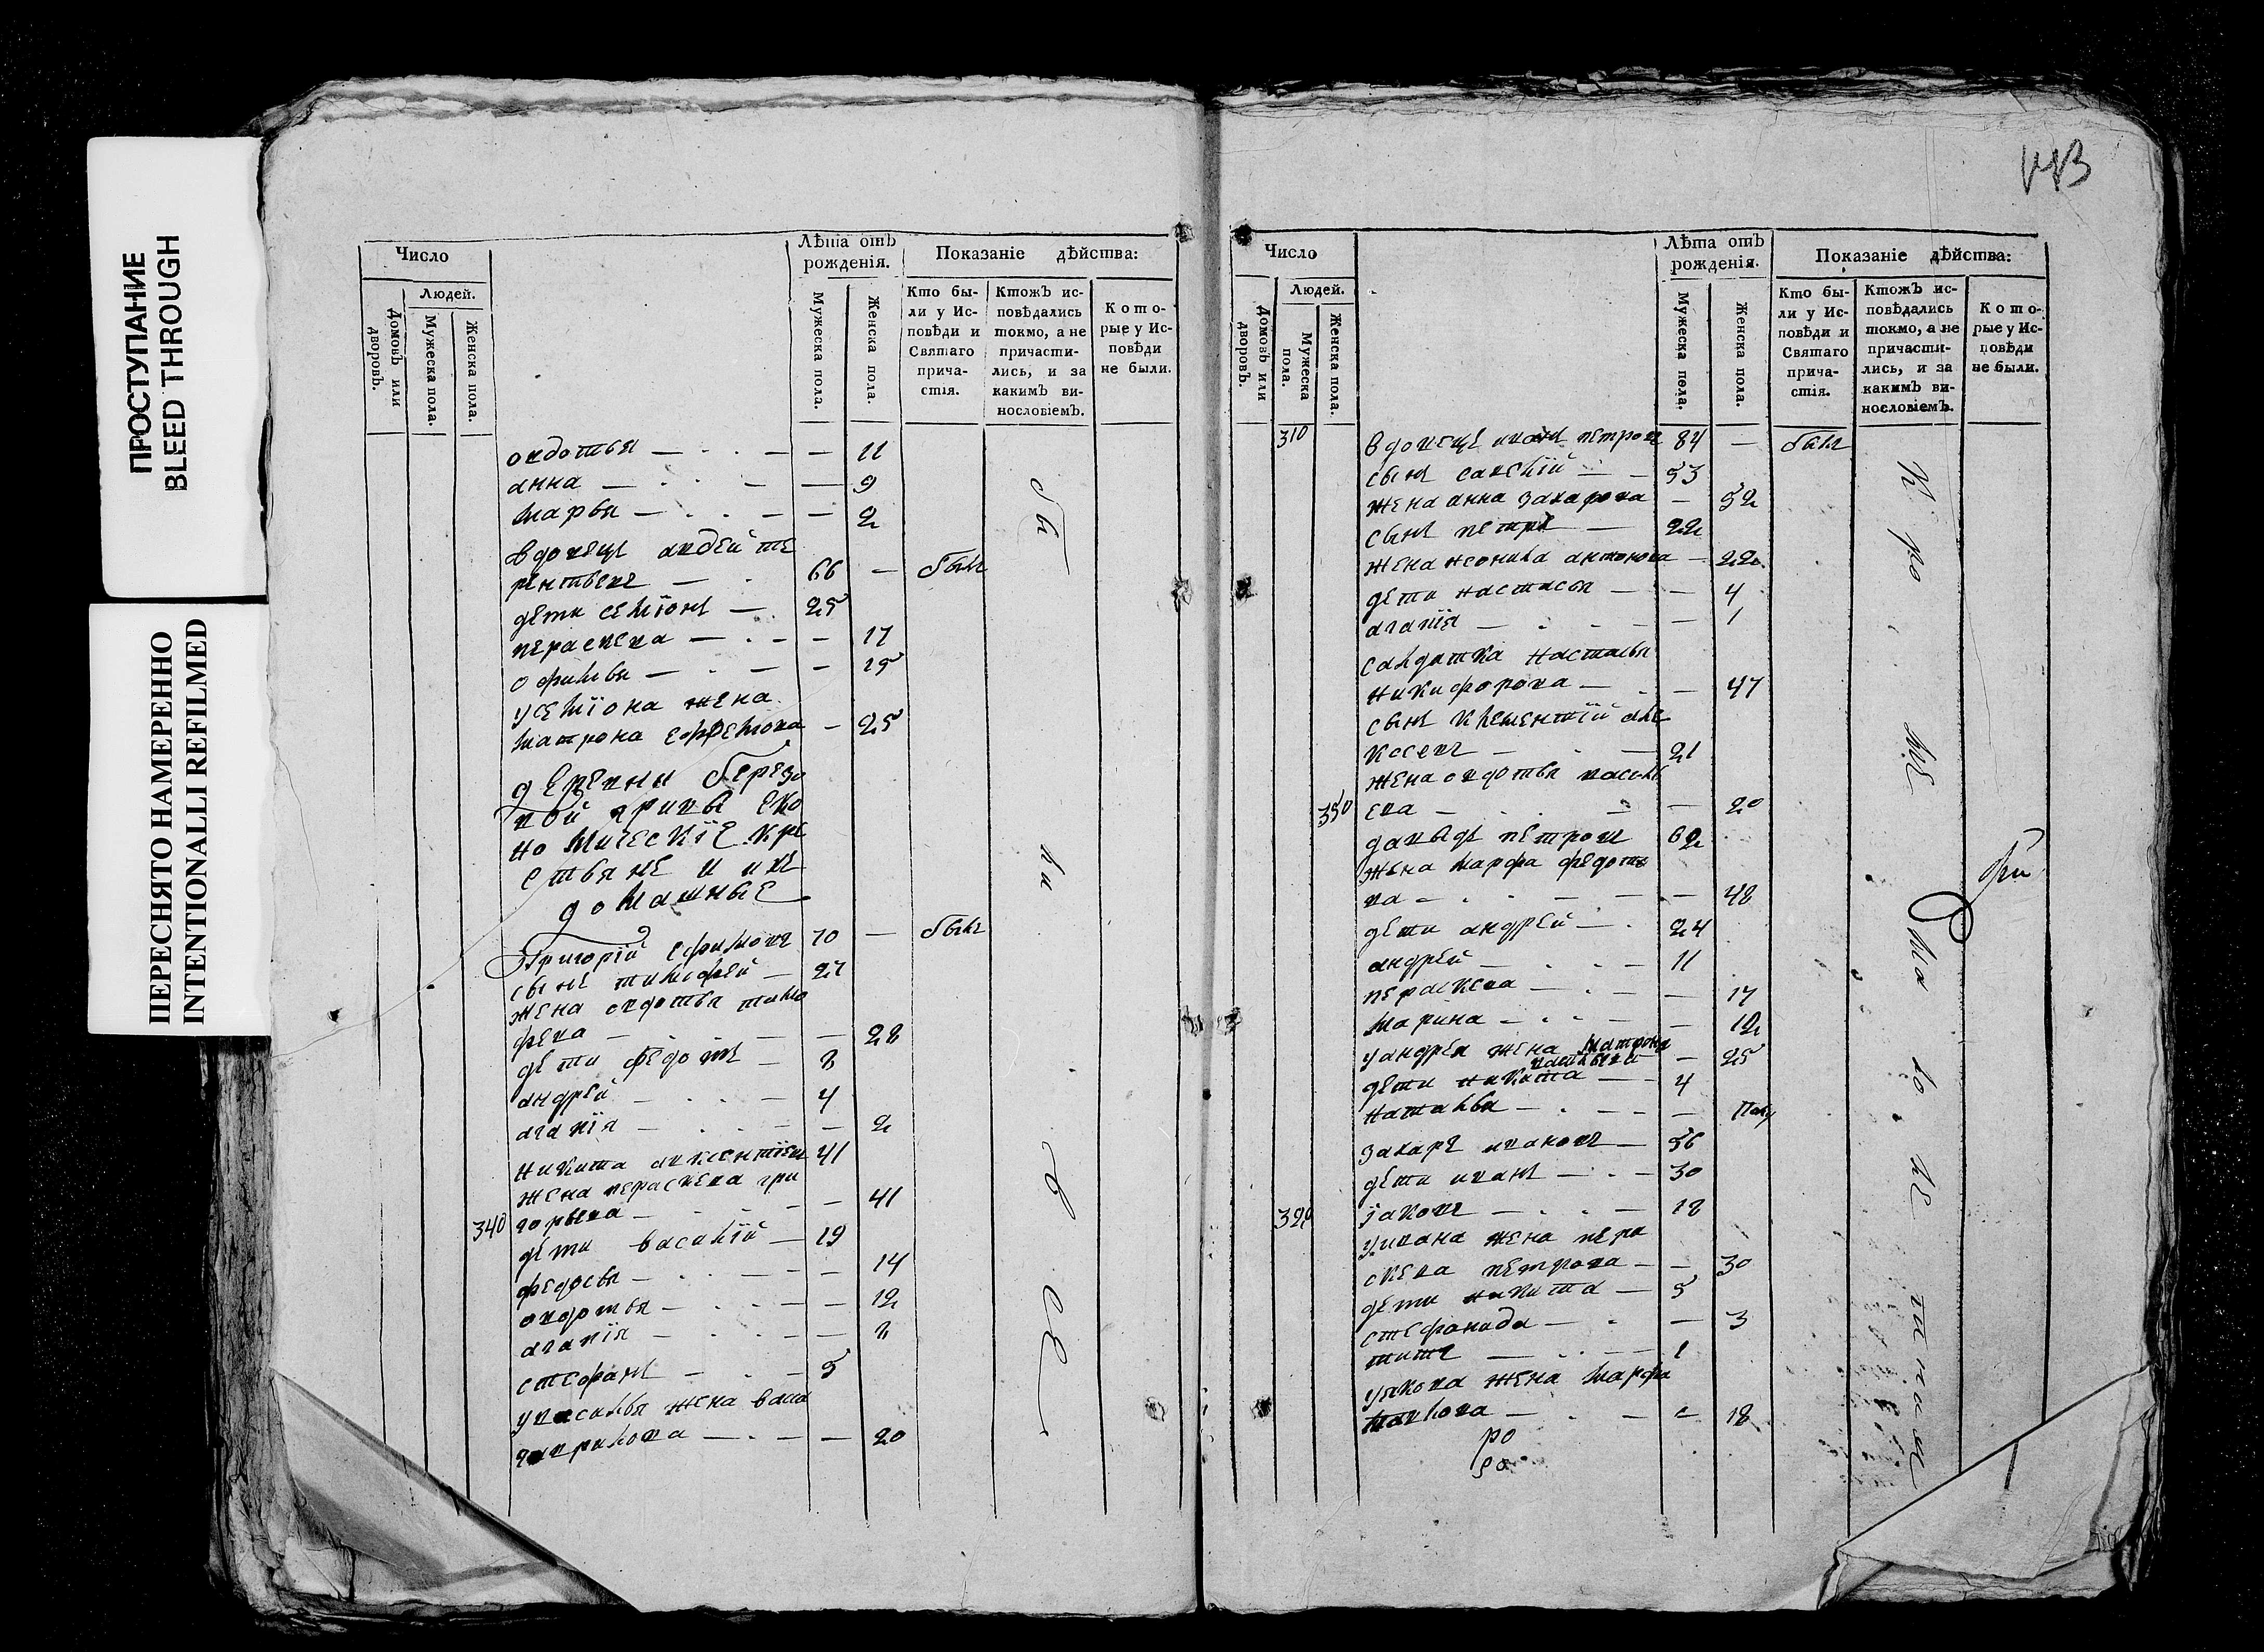 ПРОСТУПАНИЕ
BLEED THROUGH
ПЕРЕСНЯТО НАМЕРЕННО
INTENTIONALLI REFILMED
Число
Лѣта отъ рожденія.
Показаніе дѣйства:
Людей.
Домовъ или дворовъ.
Мужеска пола.
Женска пола.
Мужеска пола.
Женска пола.
Кто бы-
ли у Ис-
повѣди и
Святаго
прича-
стія.
Ктожъ ис-
повѣдались
токмо, а не
причасти-
лись, и за
какимъ ви-
нословіемъ.
Кото-
рые у Ис-
повѣди
не были.
овдотья — 11
анна — 9
марья — 2
вдовецъ авдей те
рентьевъ — 66 — былъ
дети семїонъ — 25
пераскева — 17
офимья — 15
у семїона жена
матрона ефремова — 25
деревни березо
вой гривы еко
номическїе кре
стьяне и ихъ
домашные
Григорїй ефимовъ 70 — былъ
сынъ тимофей — 27
жена овдотья тимо
феева — 28
дети федотъ — 8
андрей — 4
агапїя — 2
никита авксентїевъ 41
жена пераскева гри
340 горьева — 41
дети василїй — 19
федосья — 14
овдотья — 12
агапїя — 8
стефанъ — 5
у василья жена васа
гаврилова — 20
бы
ли
в
се
Число
Лѣта отъ рожденія.
Показаніе дѣйства:
Людей.
Домовъ или дворовъ.
Мужеска пола.
Женска пола.
Мужеска пола.
Женска пола.
Кто бы-
ли у Ис-
повѣди и
Святаго
прича-
стія.
Ктожъ ис-
повѣдались
токмо, а не
причасти-
лись, и за
какимъ ви-
нословіемъ.
Кото-
рые у Ис-
повѣди
не были.
310 вдовецъ иванъ петровъ 84 — былъ
сынъ савелїй — 53
жена анна захарова — 52
сынъ петръ — 22
жена антонова — 22
дети настасья — 4
агапїя — 1
салдатка настасья
никифорова — 47
сынъ климентїй але
ксеевъ — 21
жена овдотья василь
350 ева — 20
давыдъ петровъ 62
жена марфа федото
ва — 48
дети андрей — 24
андрей — 11
пераскева — 17
марина — 12
у андрея жена матрона
васильева — 25
дети никита — 4
наталья — полу
захаръ ивановъ — 56
дети иванъ — 30
320 їаковъ — 18
у ивана жена пера
скева петрова — 30
дети никита — 5
стефанида — 3
титъ — 1
у якова жена марфа
павлова — 18